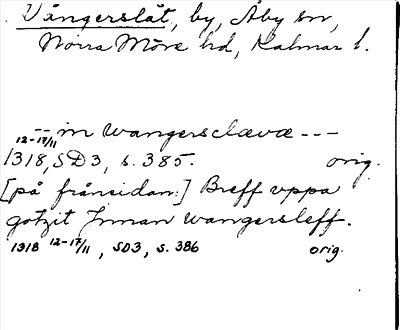 Vångerslät, by, Åby sn,
Norra Möre hd, Kalmar l.
-- in wangerslævæ ---
12-17/11
1318, SD3, s. 385. orig.
[på frånsidan:] Breff vppa
gotzit Jnnan wangersleff.
1318 12-17/11, SD3, s. 386 orig.